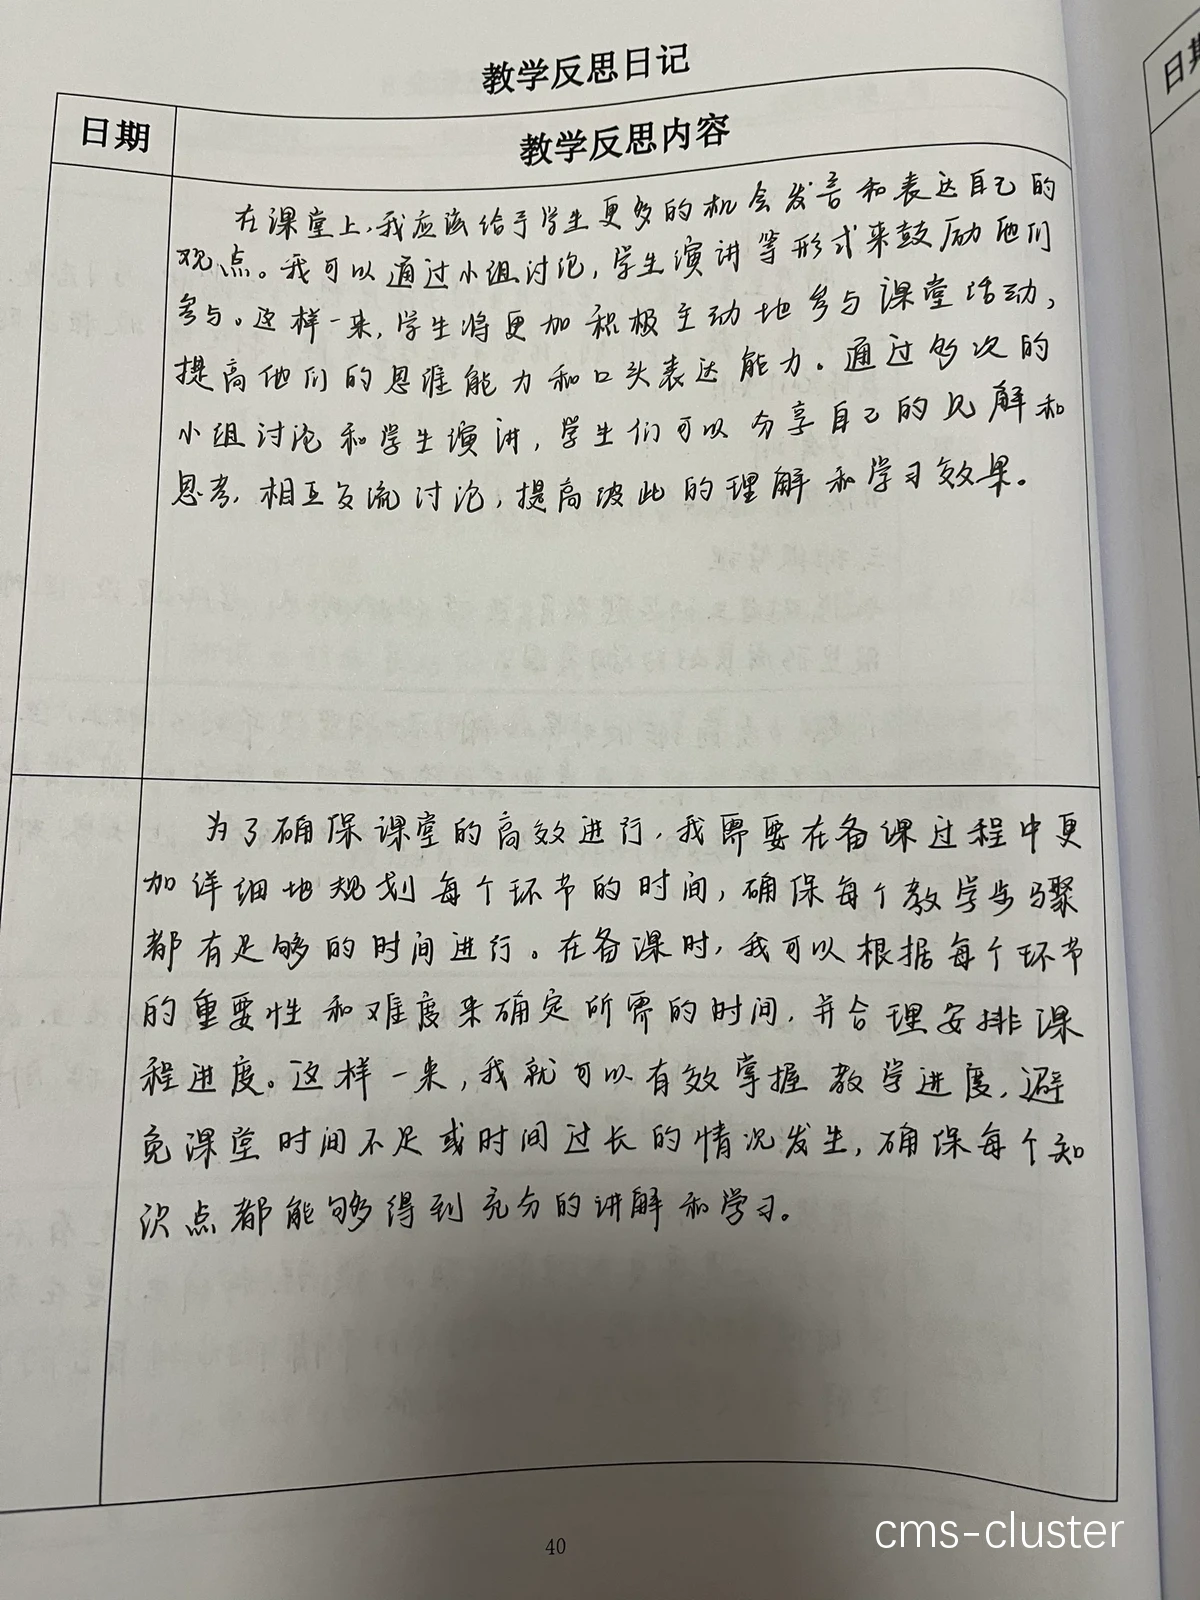 教学反思日记
日期
教学反思内容
在课堂上,我应该给予学生更多的机会发言和表达自己的
观点。我可以通过小组讨论,学生演讲等形式来鼓励他们
参与。这样一来,学生将更加积极主动地参与课堂活动,
提高他们的思维能力和口头表达能力。通过多次的
小组讨论和学生演讲,学生们可以分享自己的见解和
思考,相互交流讨论,提高彼此的理解和学习效果。
为了确保课堂的高效进行,我需要在备课过程中更
加详细地规划每个环节的时间,确保每个教学步骤
都有足够的时间进行。在备课时,我可以根据每个环节
的重要性和难度来确定所需的时间,并合理安排课
程进度。这样一来,我就可以有效掌握教学进度,避
免课堂时间不足或时间过长的情况发生,确保每个知
识点都能够得到充分的讲解和学习。
40
cms-cluster
日期